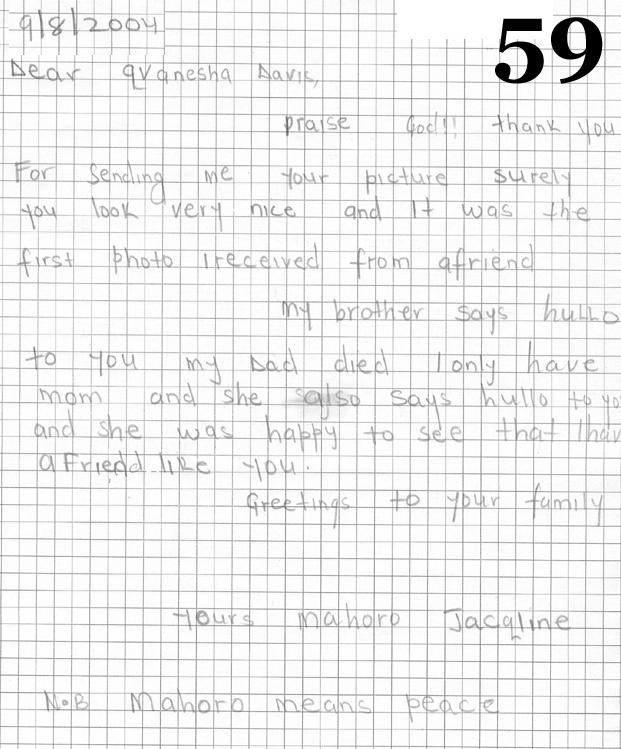 9/8/2004
59
Dear Qvanesha Davis,
praise God!! thank you
For sending me your picture surely
you look very nice and It was the
first photo Ireceived from afriend
my brother says hullo
to you my Dad died I only have
mom and she also says hullo to yo
and she was happy to see that Ihav
a Friedd like you.
Greetings to your family
Yours Mahoro Jacqline
N.B Mahoro means peace